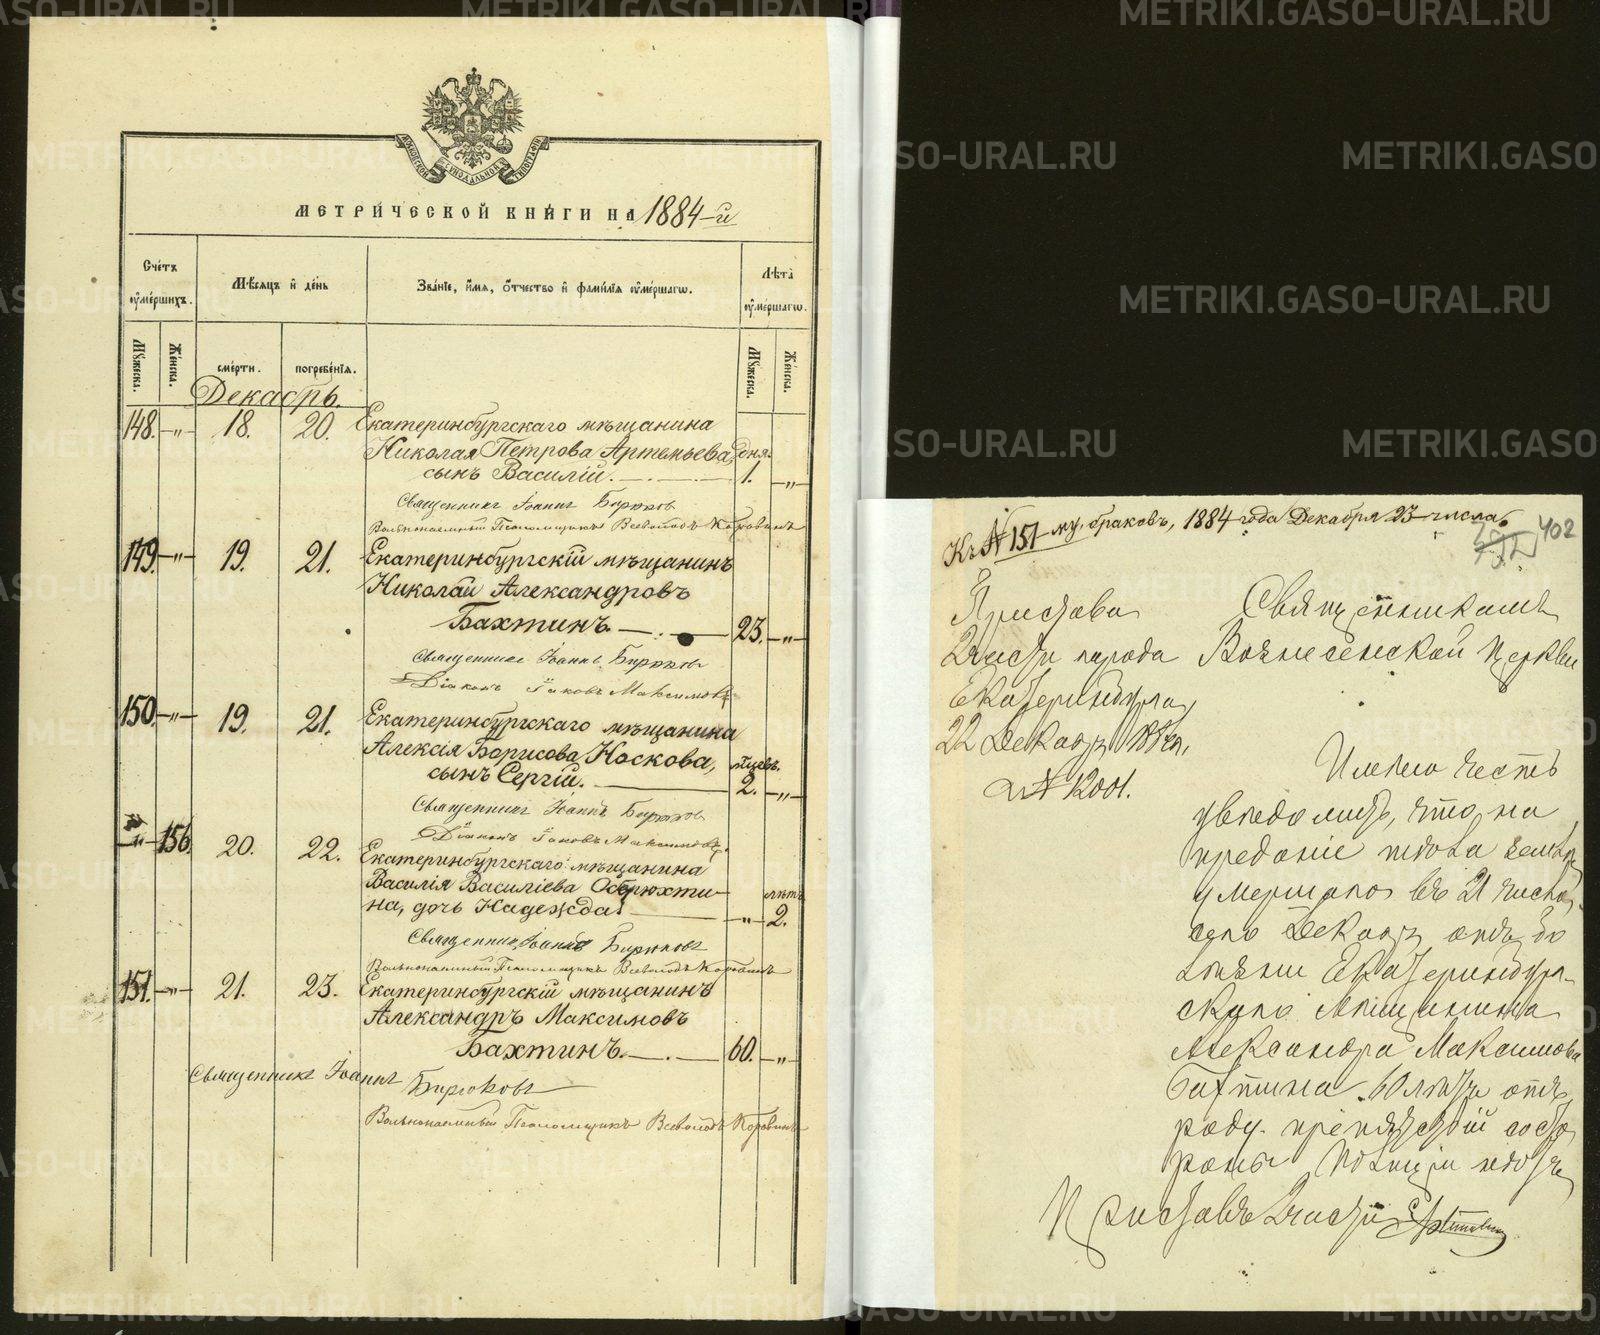 МОСКОВСКОЙ СУНОДАЛЬНОЙ ТИПОГРАФІИ
МЕТРИ́ЧЕСКОЙ КНИ́ГИ НА 1884-й
Сче́тъ оуме́ршихъ.
Мѣ́сяцъ и де́нь
Зва́нїе, и́мя, о́тчество и фами́лїя оуме́ршагѡ.
Лѣ́та оуме́ршагѡ.
Мꙋ́жеска.
Же́нска.
сме́рти.
погребе́нїѧ.
Мꙋ́жеска.
Же́нска.
Декабрь.
148. -„- 18. 20. Екатеринбургскаго мѣщанина
Николая Петрова Артемьева дня.
сынъ Василій. 1. -„-
Священникъ Іоаннъ Бирюковъ
Вольнонаемный Псаломщикъ Всеволодъ Коровинъ
149. -„- 19. 21. Екатеринбургскій мѣщанинъ
Николай Александровъ
Бахтинъ. 23. -„-
Священникъ Іоаннъ Бирюковъ
Діаконъ Іаковъ Максимовъ
150. -„- 19. 21. Екатеринбургскаго мѣщанина
Алексія Борисова Носкова, мѣсцевъ.
сынъ Сергій. 2. -„-
Священникъ Іоаннъ Бирюковъ
Діаконъ Іаковъ Максимовъ.
-„- 156. 20. 22. Екатеринбургскаго мѣщанина
Василія Василіева Обрюхти- лѣтъ
на, дочь Надежда. -„- 2.
Священникъ Іоаннъ Бирюковъ
Вольнонаемный Псаломщикъ Всеволодъ Коровинъ
151. -„- 21. 23. Екатеринбургскій мѣщанинъ
Александръ Максимовъ
Бахтинъ. 60. -„-
Священникъ Іоаннъ Бирюковъ
Вольнонаемный Псаломщикъ Всеволодъ Коровинъ
Къ № 151-му браковъ, 1884 года Декабря 23 числа.
402
Пристава
2 части города
Екатеринбурга
22 Декабр 1884 г.
№ 12001.
Священникамъ
Вознесенской Церкви
Имѣю честь
увѣдомить, что на
преданіе тѣла землѣ
умершаго въ 21 число
сего Декабр отъ бо
лѣзни Екатеринбург-
скаго мѣщанина
Александра Максимова
Бахтина 60 лѣтъ отъ
роду препятствій со сто
роны Полиціи нѣтъ
Приставъ 2 части
METRIKI.GASO-URAL.RU